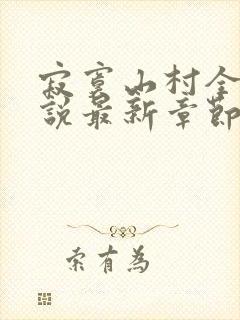 寂寞山村全
說最新章節
索有為